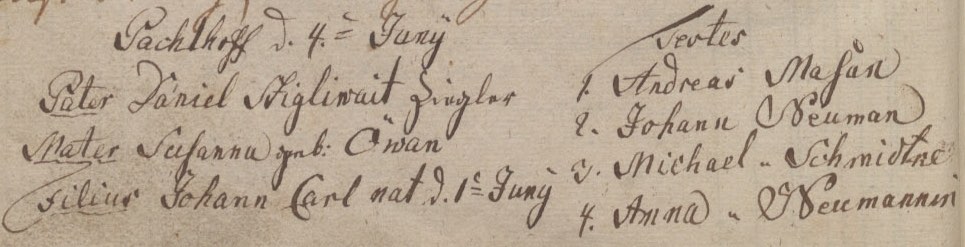 Pachthoff d. 4.t Juny
Pater Daniel Stigliwait Ziegler
Mater Susanna geb: Öwan
Filius Johann Carl nat d. 1t Juny
Testes
1. Andreas Masan
2. Johann Neuman
3. Michael " Schmidtke
4. Anna " Neumannin